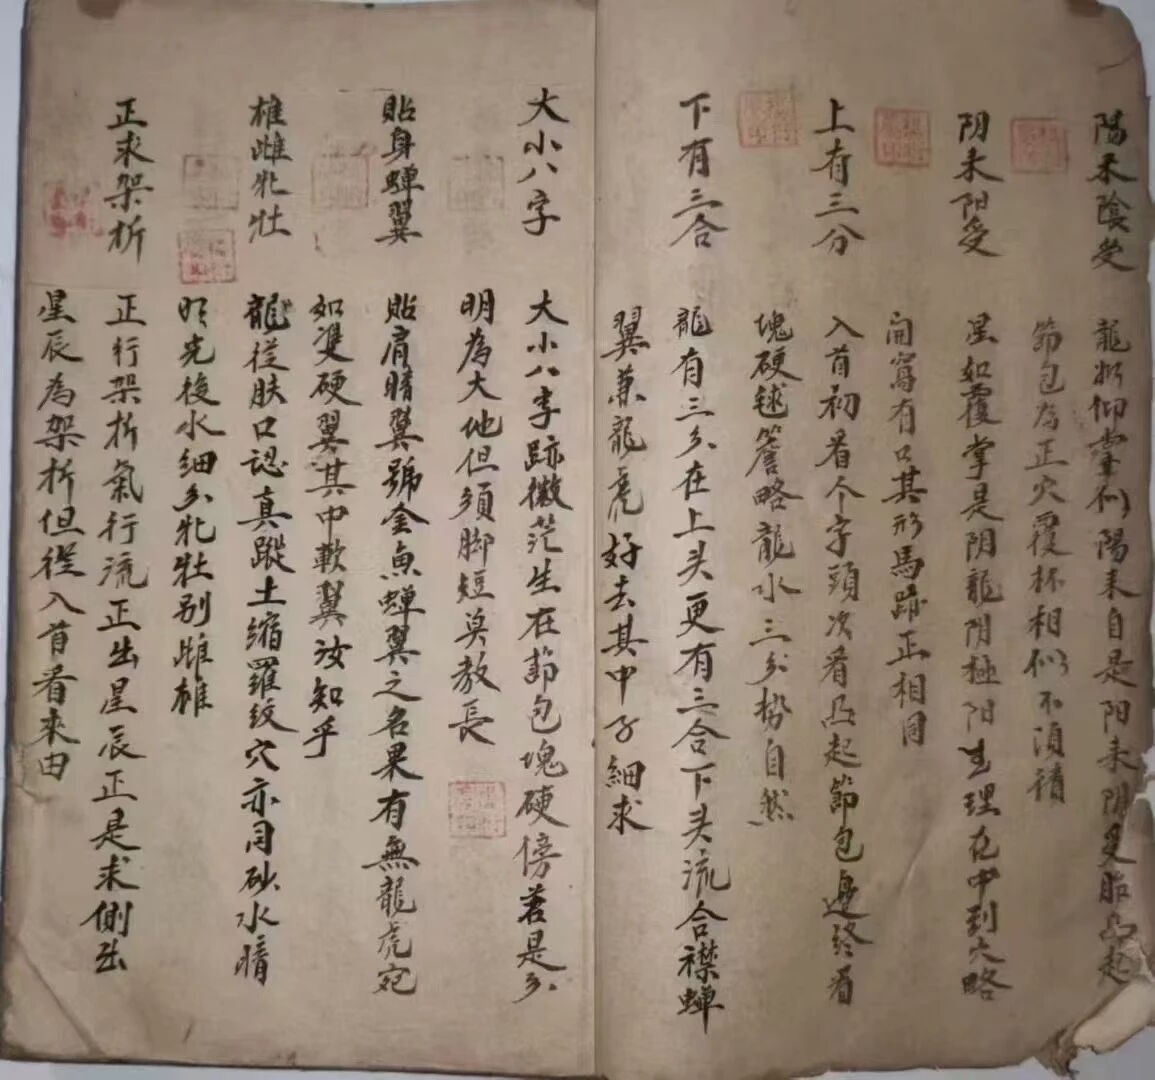 陽来陰受　龍如仰掌似陽来自是阳来阴受胎凸起
節包為正穴覆杯相似不須猜
阴来阳受　星如覆掌是阴龍阴極阳生理在中到穴略
開窩有口其形馬跡正相同
上有三分　入首初看个字頭次看凸起節包邊終看
塊硬毬簷略龍水三分勢自然
下有三合　龍有三分在上头更有三合下头流合襟蟬
翼兼龍虎好去其中子細求
大小八字　大小八字跡微茫生在節包塊硬傍若是分
明為大他但须脚短莫教長
貼身蟬翼　貼肩暗翼號金魚蟬翼之名果有無龍虎宛
如雙硬翼其中軟翼汝知乎
雄雌牝牡　龍從肤口認真蹤土縮羅紋穴亦同砂水暗
明先後水細分牝牡别雌雄
正求架折　正行架折氣行流正出星辰正是求側出
星辰為架折但從入首看来由